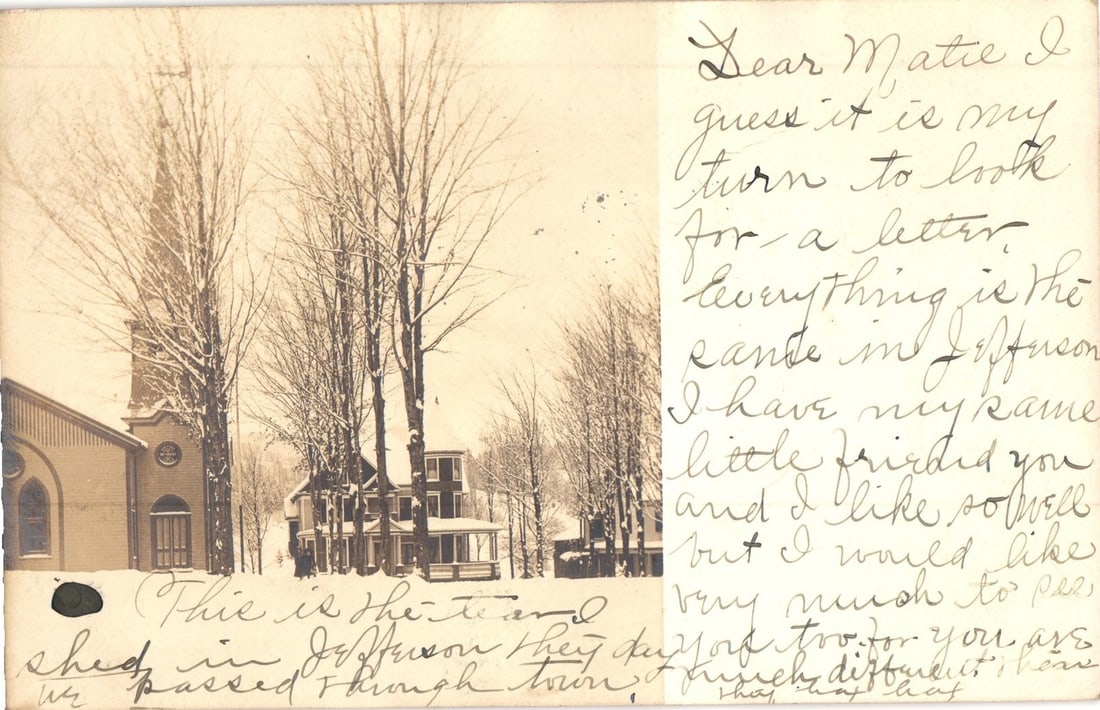 Dear Matie I
guess it is my
turn to look
for a letter.
Everything is the
same in Jefferson
I have my same
little friend you
and I like so well
but I would like
very much to see
you too. for you are
much different then
hay hay
This is the tear I
shed in Jefferson they day
we passed through town.